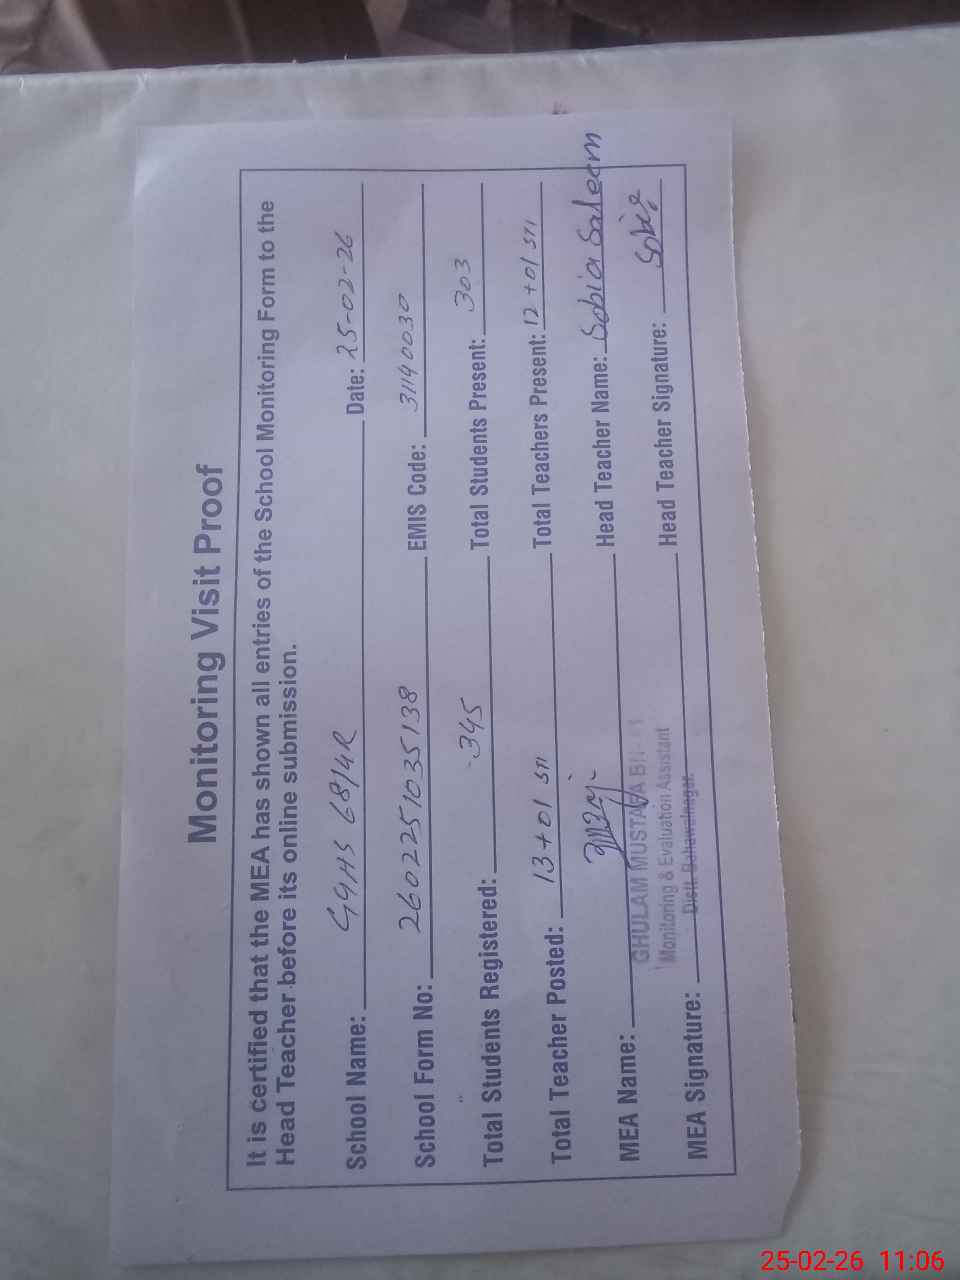 Monitoring Visit Proof
It is certified that the MEA has shown all entries of the School Monitoring Form to the
Head Teacher before its online submission.
School Name: GGHS 68/4R Date: 25-02-26
School Form No: 2602251035138 EMIS Code: 31140030
Total Students Registered: 345 Total Students Present: 303
Total Teacher Posted: 13+01 STI Total Teachers Present: 12+01 STI
MEA Name: GHULAM MUSTAFA Head Teacher Name: Sobia Saleem
Monitoring & Evaluation Assistant
MEA Signature: Distt. Bahawalnagar. Head Teacher Signature: Sobia
25-02-26 11:06